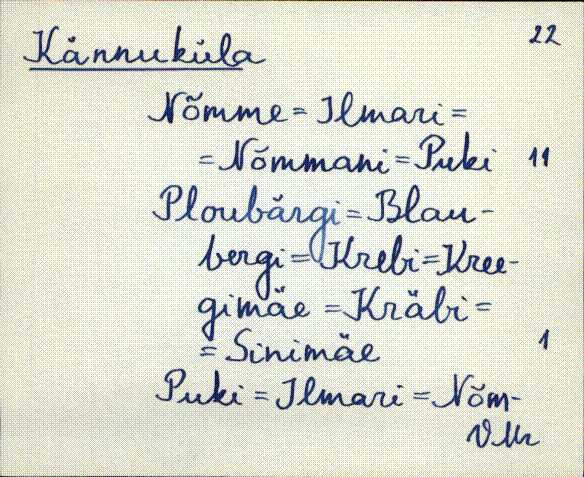 Kännuküla 22
Nõmme = Ilmari =
= Nõmmani = Puki 11
Ploubärgi = Blau-
bergi = Krebi = Kree-
gimäe = Kräbi =
= Sinimäe 1
Puki = Ilmari = Nõm-